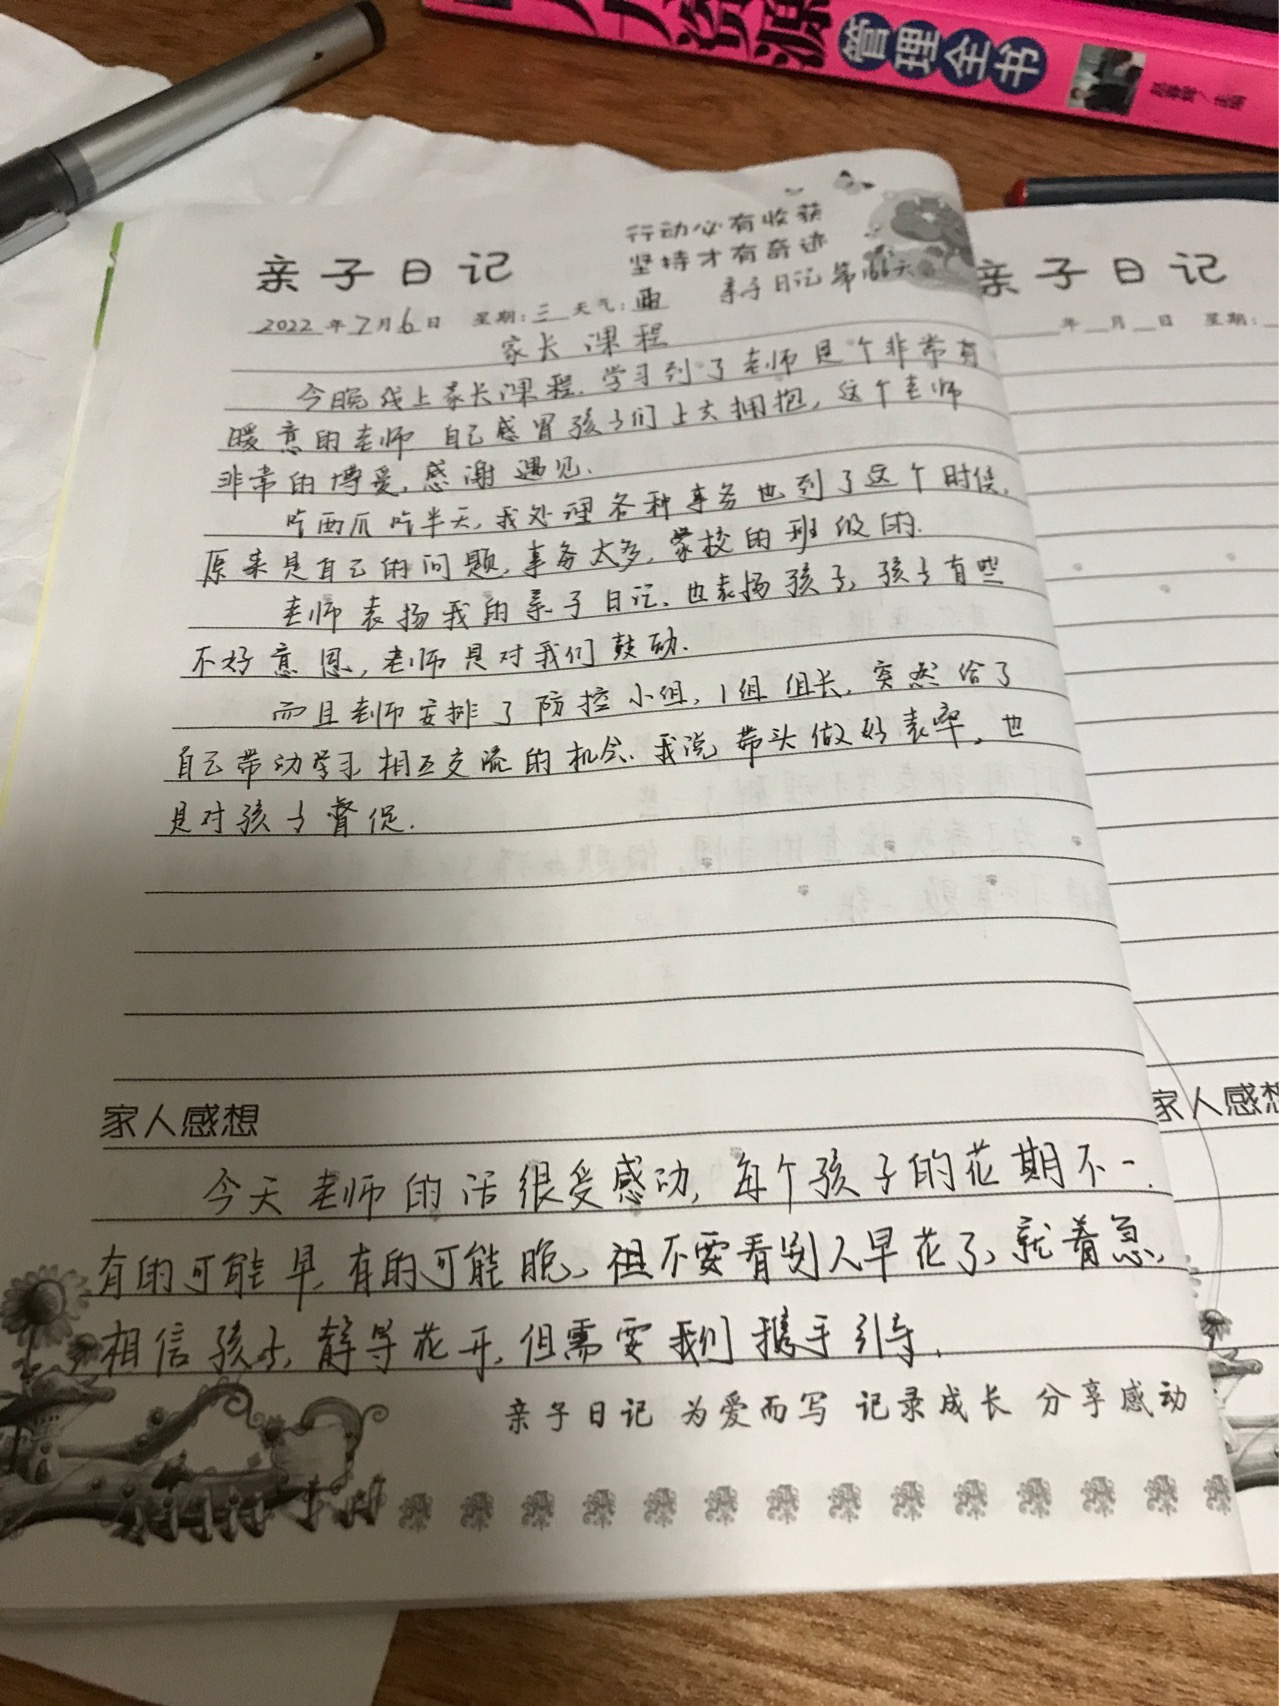 管理全书
亲子日记
行动必有收获
坚持才有奇迹
亲子日记第166天
2022年7月6日 星期:三 天气:
家长课程
今晚线上家长课程.学习到了老师是个非常有
暖意的老师 自己感冒孩子们上大拥抱,这个老师
非常的博爱,感谢遇见.
吃西瓜吃半天,我处理各种事务也到了这个时候,
原来是自己的问题,事务太多,学校的班级的.
老师表扬我的亲子日记,也表扬孩子,孩子有些
不好意思,老师是对我们鼓励.
而且老师安排了防控小组,1组组长,突然给了
自己带动学习相互交流的机会.我说带头做好表率,也
是对孩子督促.
家人感想
今天老师的话很受感动,每个孩子的花期不一.
有的可能早,有的可能晚,但不要看别人早花了,就着急,
相信孩子,静等花开,但需要我们携手引导.
亲子日记 为爱而写 记录成长 分享感动
亲子日记
年 月 日 星期:
家人感想